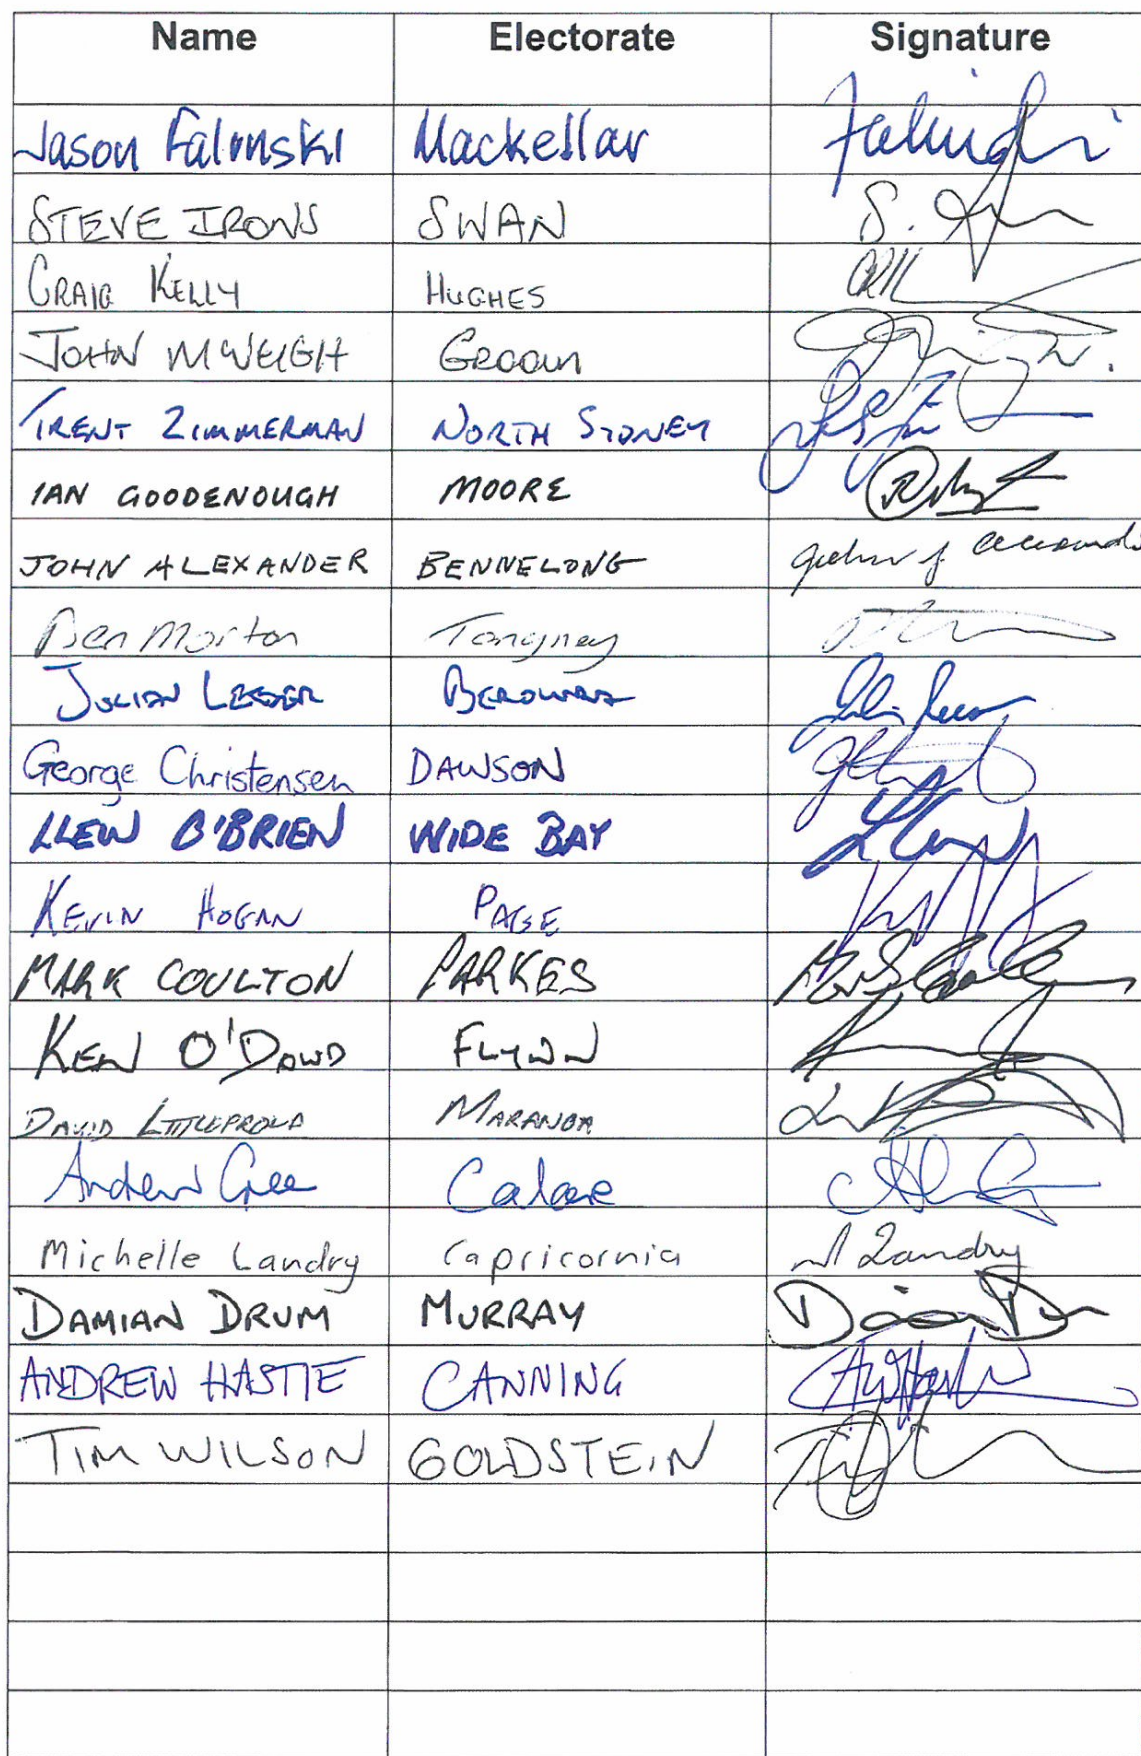 Name Electorate Signature
Jason Falinski Mackellar Falinski
STEVE IRONS SWAN S.
CRAIG KELLY HUGHES
JOHN McVEIGH GROOM
TRENT ZIMMERMAN NORTH SYDNEY
IAN GOODENOUGH MOORE
JOHN ALEXANDER BENNELONG John
Ben Morton Tangney
JULIAN LEESER BEROWRA
George Christensen DAWSON
LLEW O'BRIEN WIDE BAY
KEVIN HOGAN PAGE
MARK COULTON PARKES
KEN O'DOWD FLYNN
DAVID LITTLEPROUD MARANOA
Andrew Gee Calare
Michelle Landry Capricornia M Landry
DAMIAN DRUM MURRAY Damian Drum
ANDREW HASTIE CANNING AWHastie
TIM WILSON GOLDSTEIN